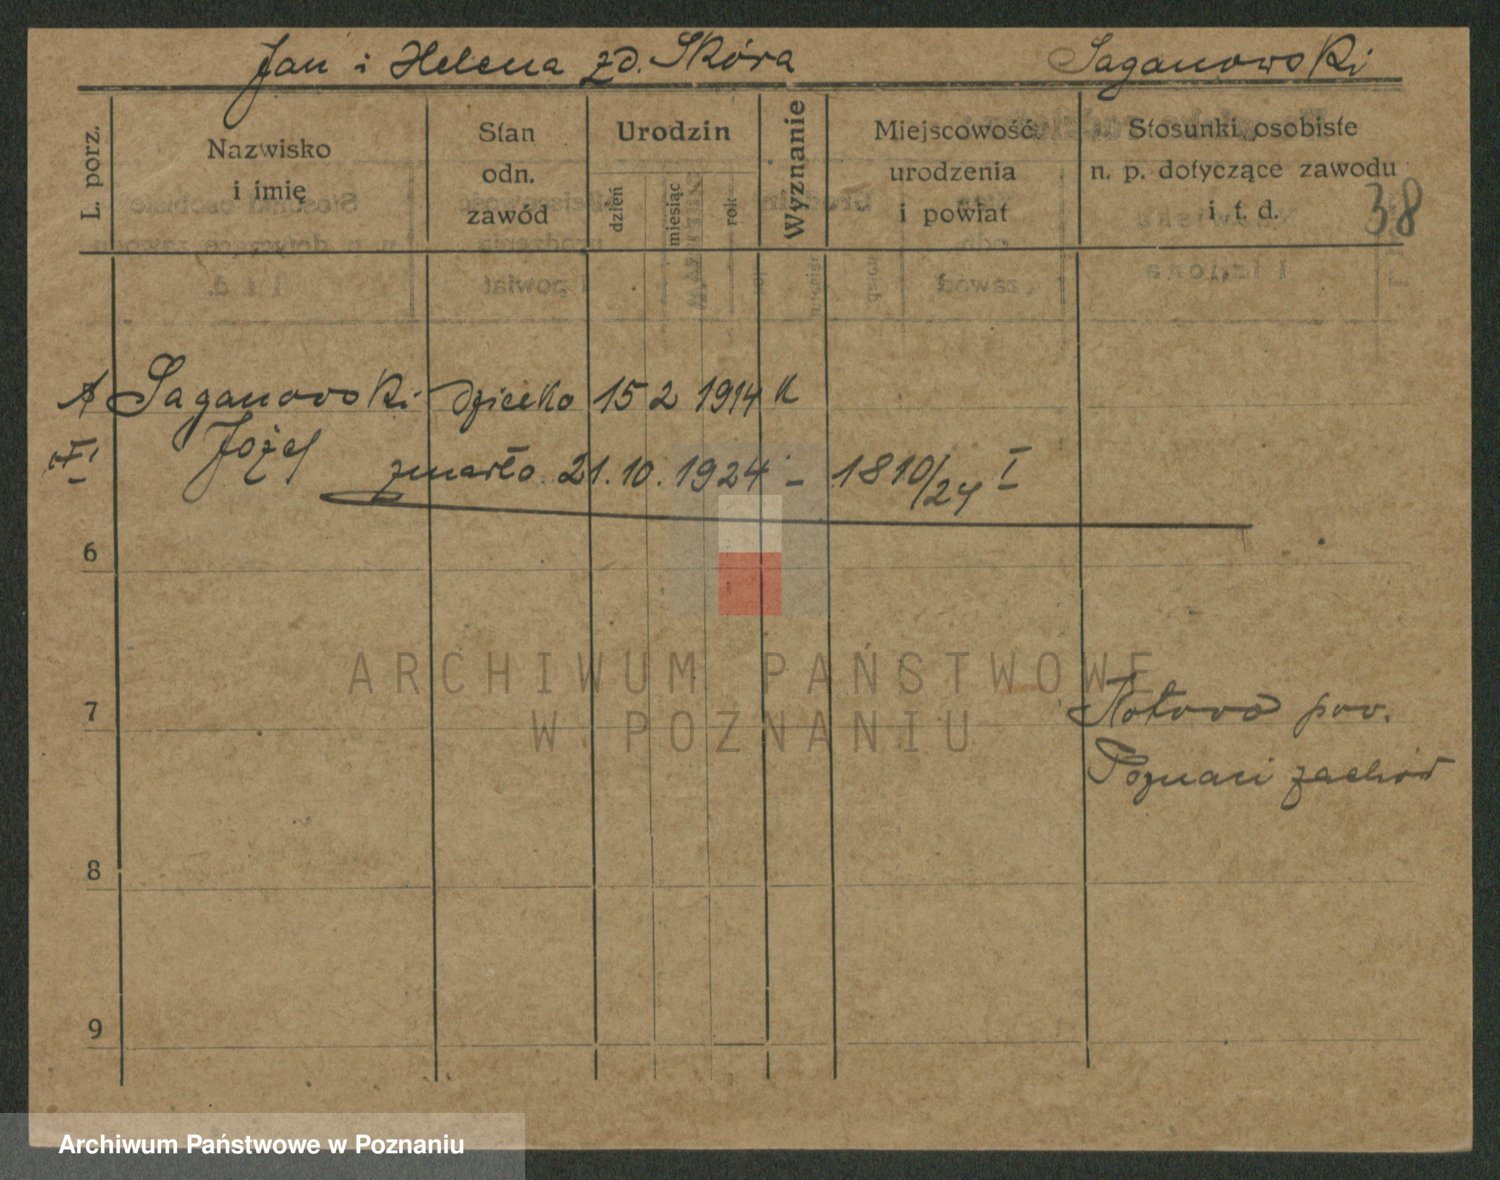 Jan i Helena zd. Skóra Saganowski
L. porz.
Nazwisko
i imię
Stan
odn.
zawód
Urodzin
dzień
miesiąc
rok
Wyznanie
Miejscowość
urodzenia
i powiat
Stosunki osobiste
n. p. dotyczące zawodu
i t. d.
38
Saganowski dziecko 15 2 1914 K
Józef
zmarło 21.10.1924 - 1810/24 I
6
7
pow.
Poznań zachód
8
9
ARCHIWUM PAŃSTWOWE
W POZNANIU
Archiwum Państwowe w Poznaniu